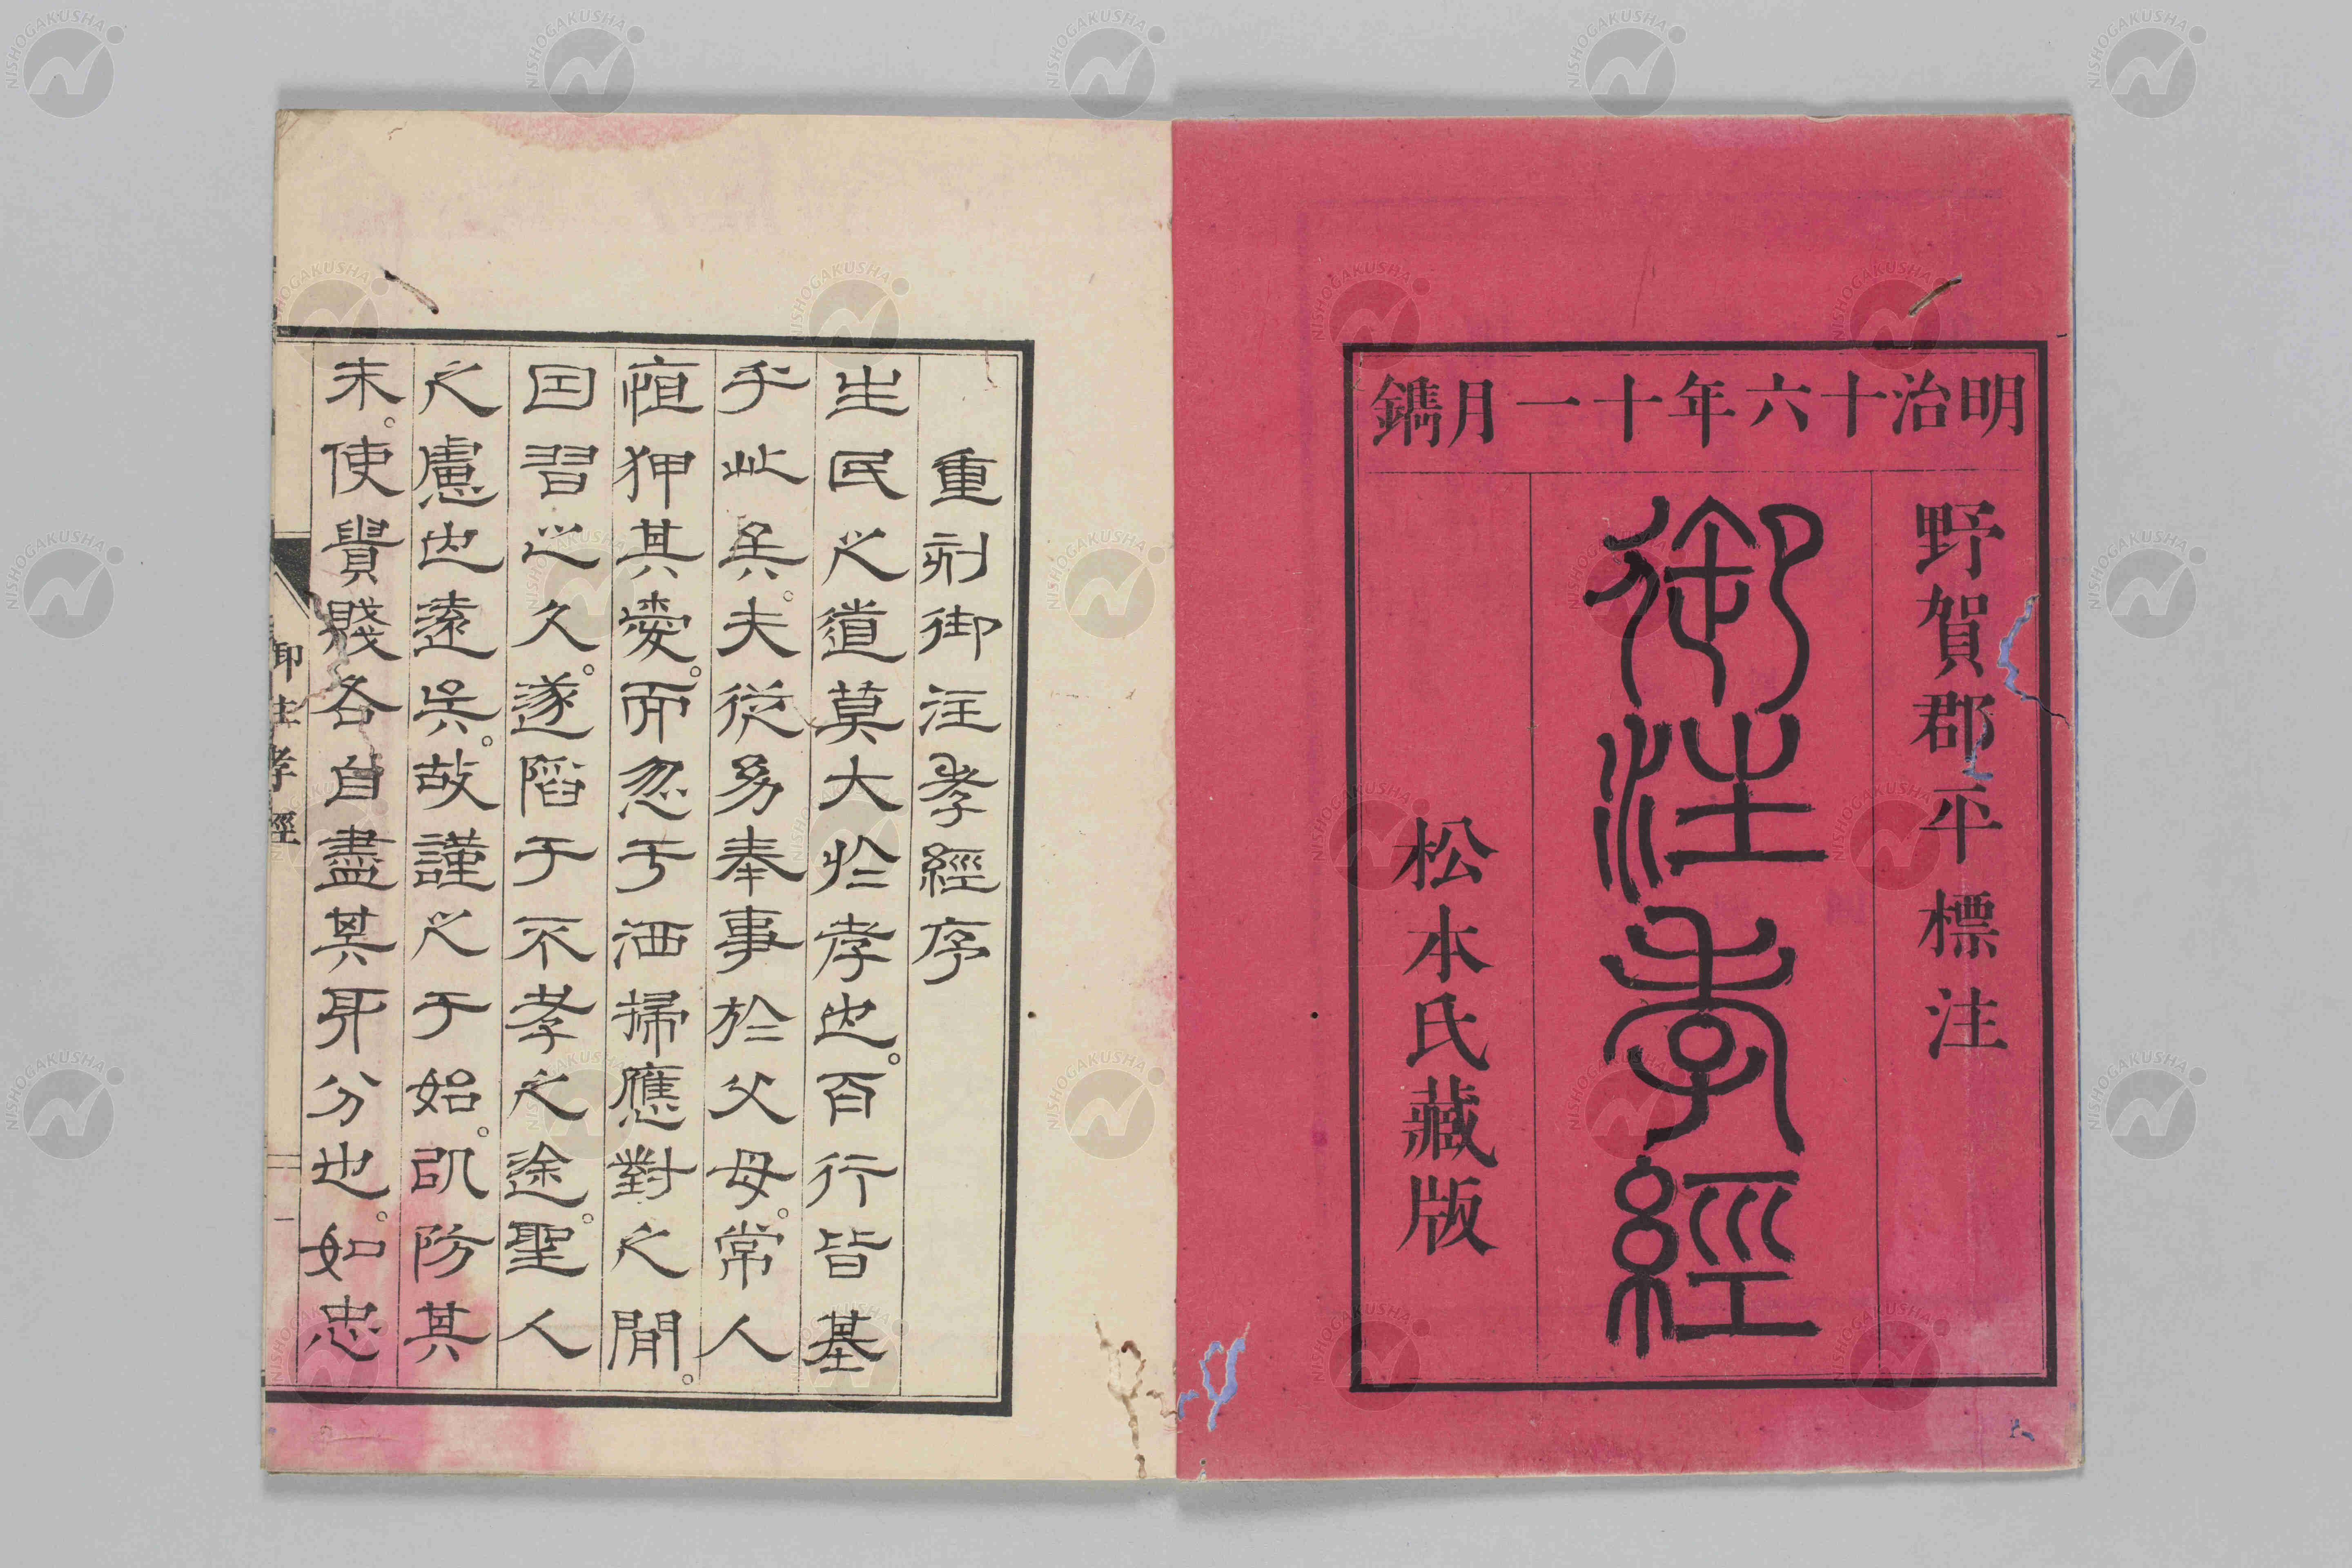 明治十六年十一月鐫
野賀郡平標注
御注孝經
松本氏藏版
重刻御注孝經序
生民之道莫大於孝也。百行皆基
乎此矣。夫從幼奉事於父母。常人
恒狎其愛。而忽于洒掃應對之閒。
因習之久。遂陷于不孝之途。聖人
之慮也遠矣。故謹之于始。以防其
末。使貴賤各自盡其所分也。如忠
御注孝經
一
NISHOGAKUSHA